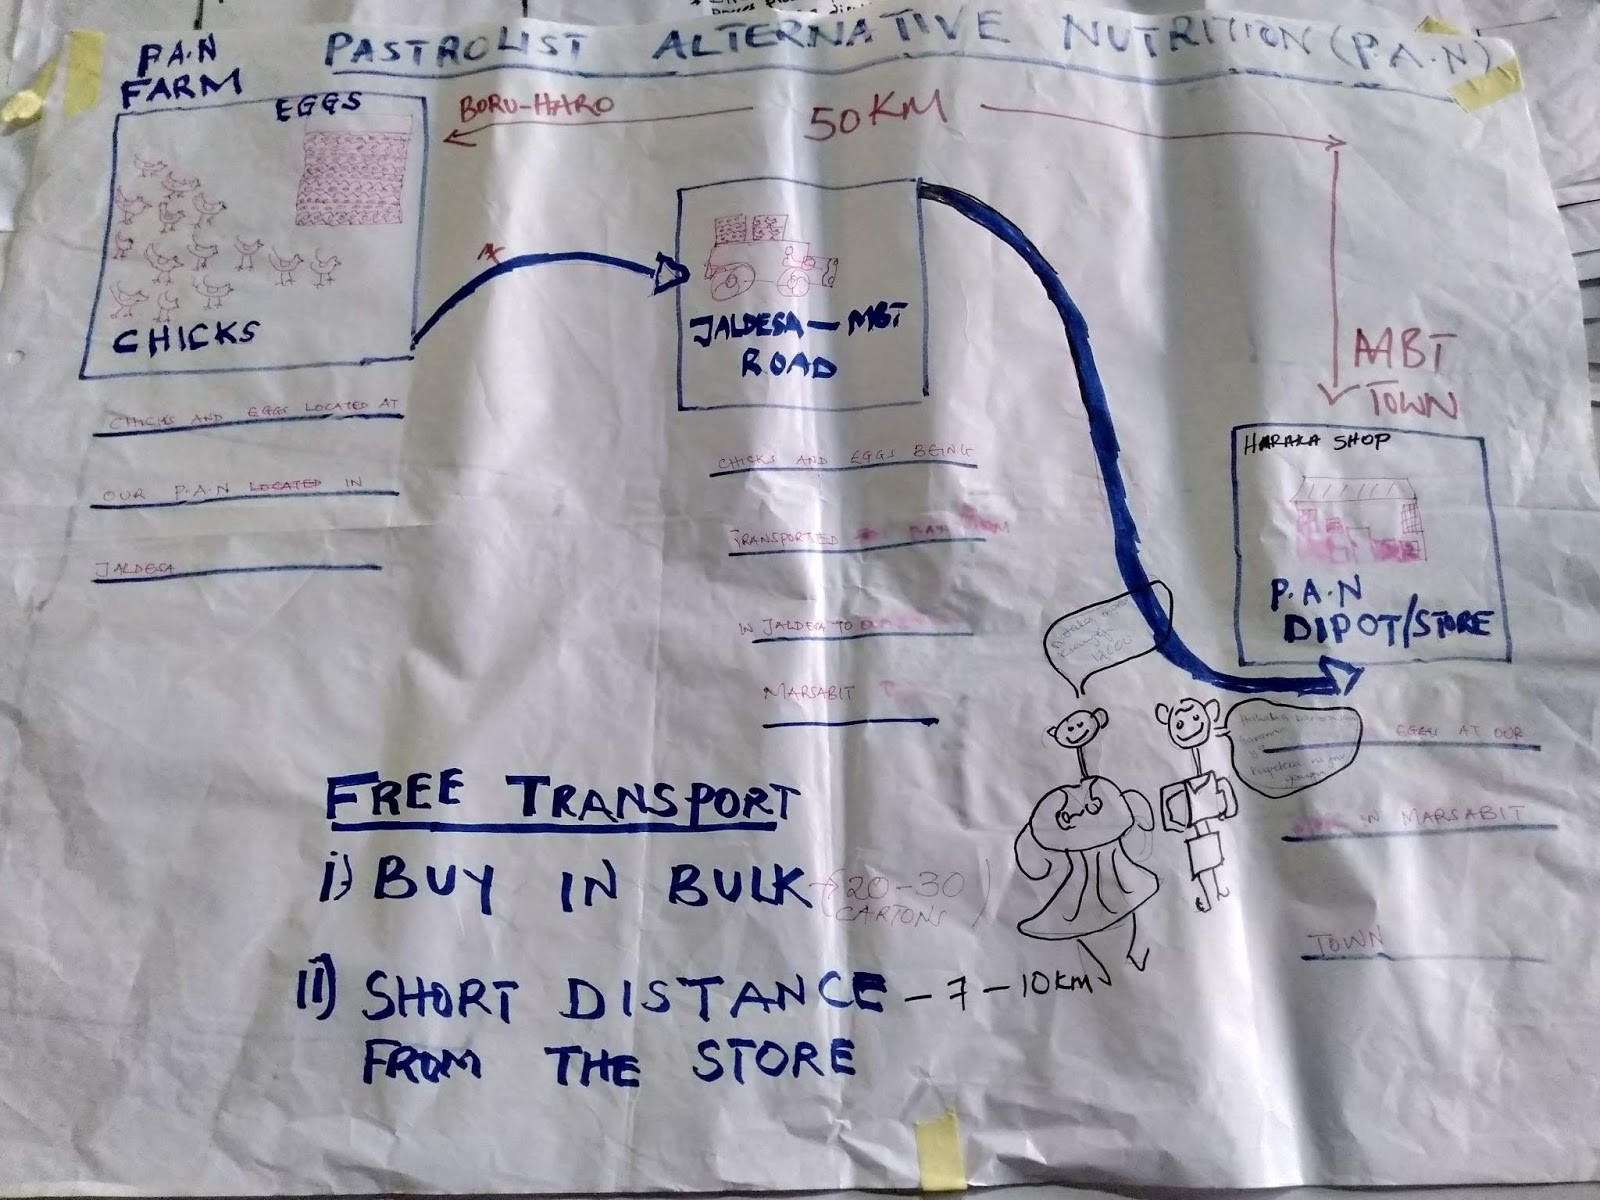 PASTROLIST ALTERNATIVE NUTRITION (P.A.N)
P.A.N
FARM
EGGS
CHICKS
BORU-HARO
50KM
JALDESA - MBT
ROAD
TOWN
HARAKA SHOP
P.A.N
DIPOT/STORE
CHICKS AND EGGS LOCATED AT
OUR P.A.N LOCATED IN
JALDESA
CHICKS AND EGGS BEING
TRANSPORTED
IN JALDESA TO
MARSABIT
EGGS AT OUR
IN MARSABIT
TOWN
12000
FREE TRANSPORT
i) BUY IN BULK → (20-30)
CARTONS
II) SHORT DISTANCE - 7-10KM
FROM THE STORE